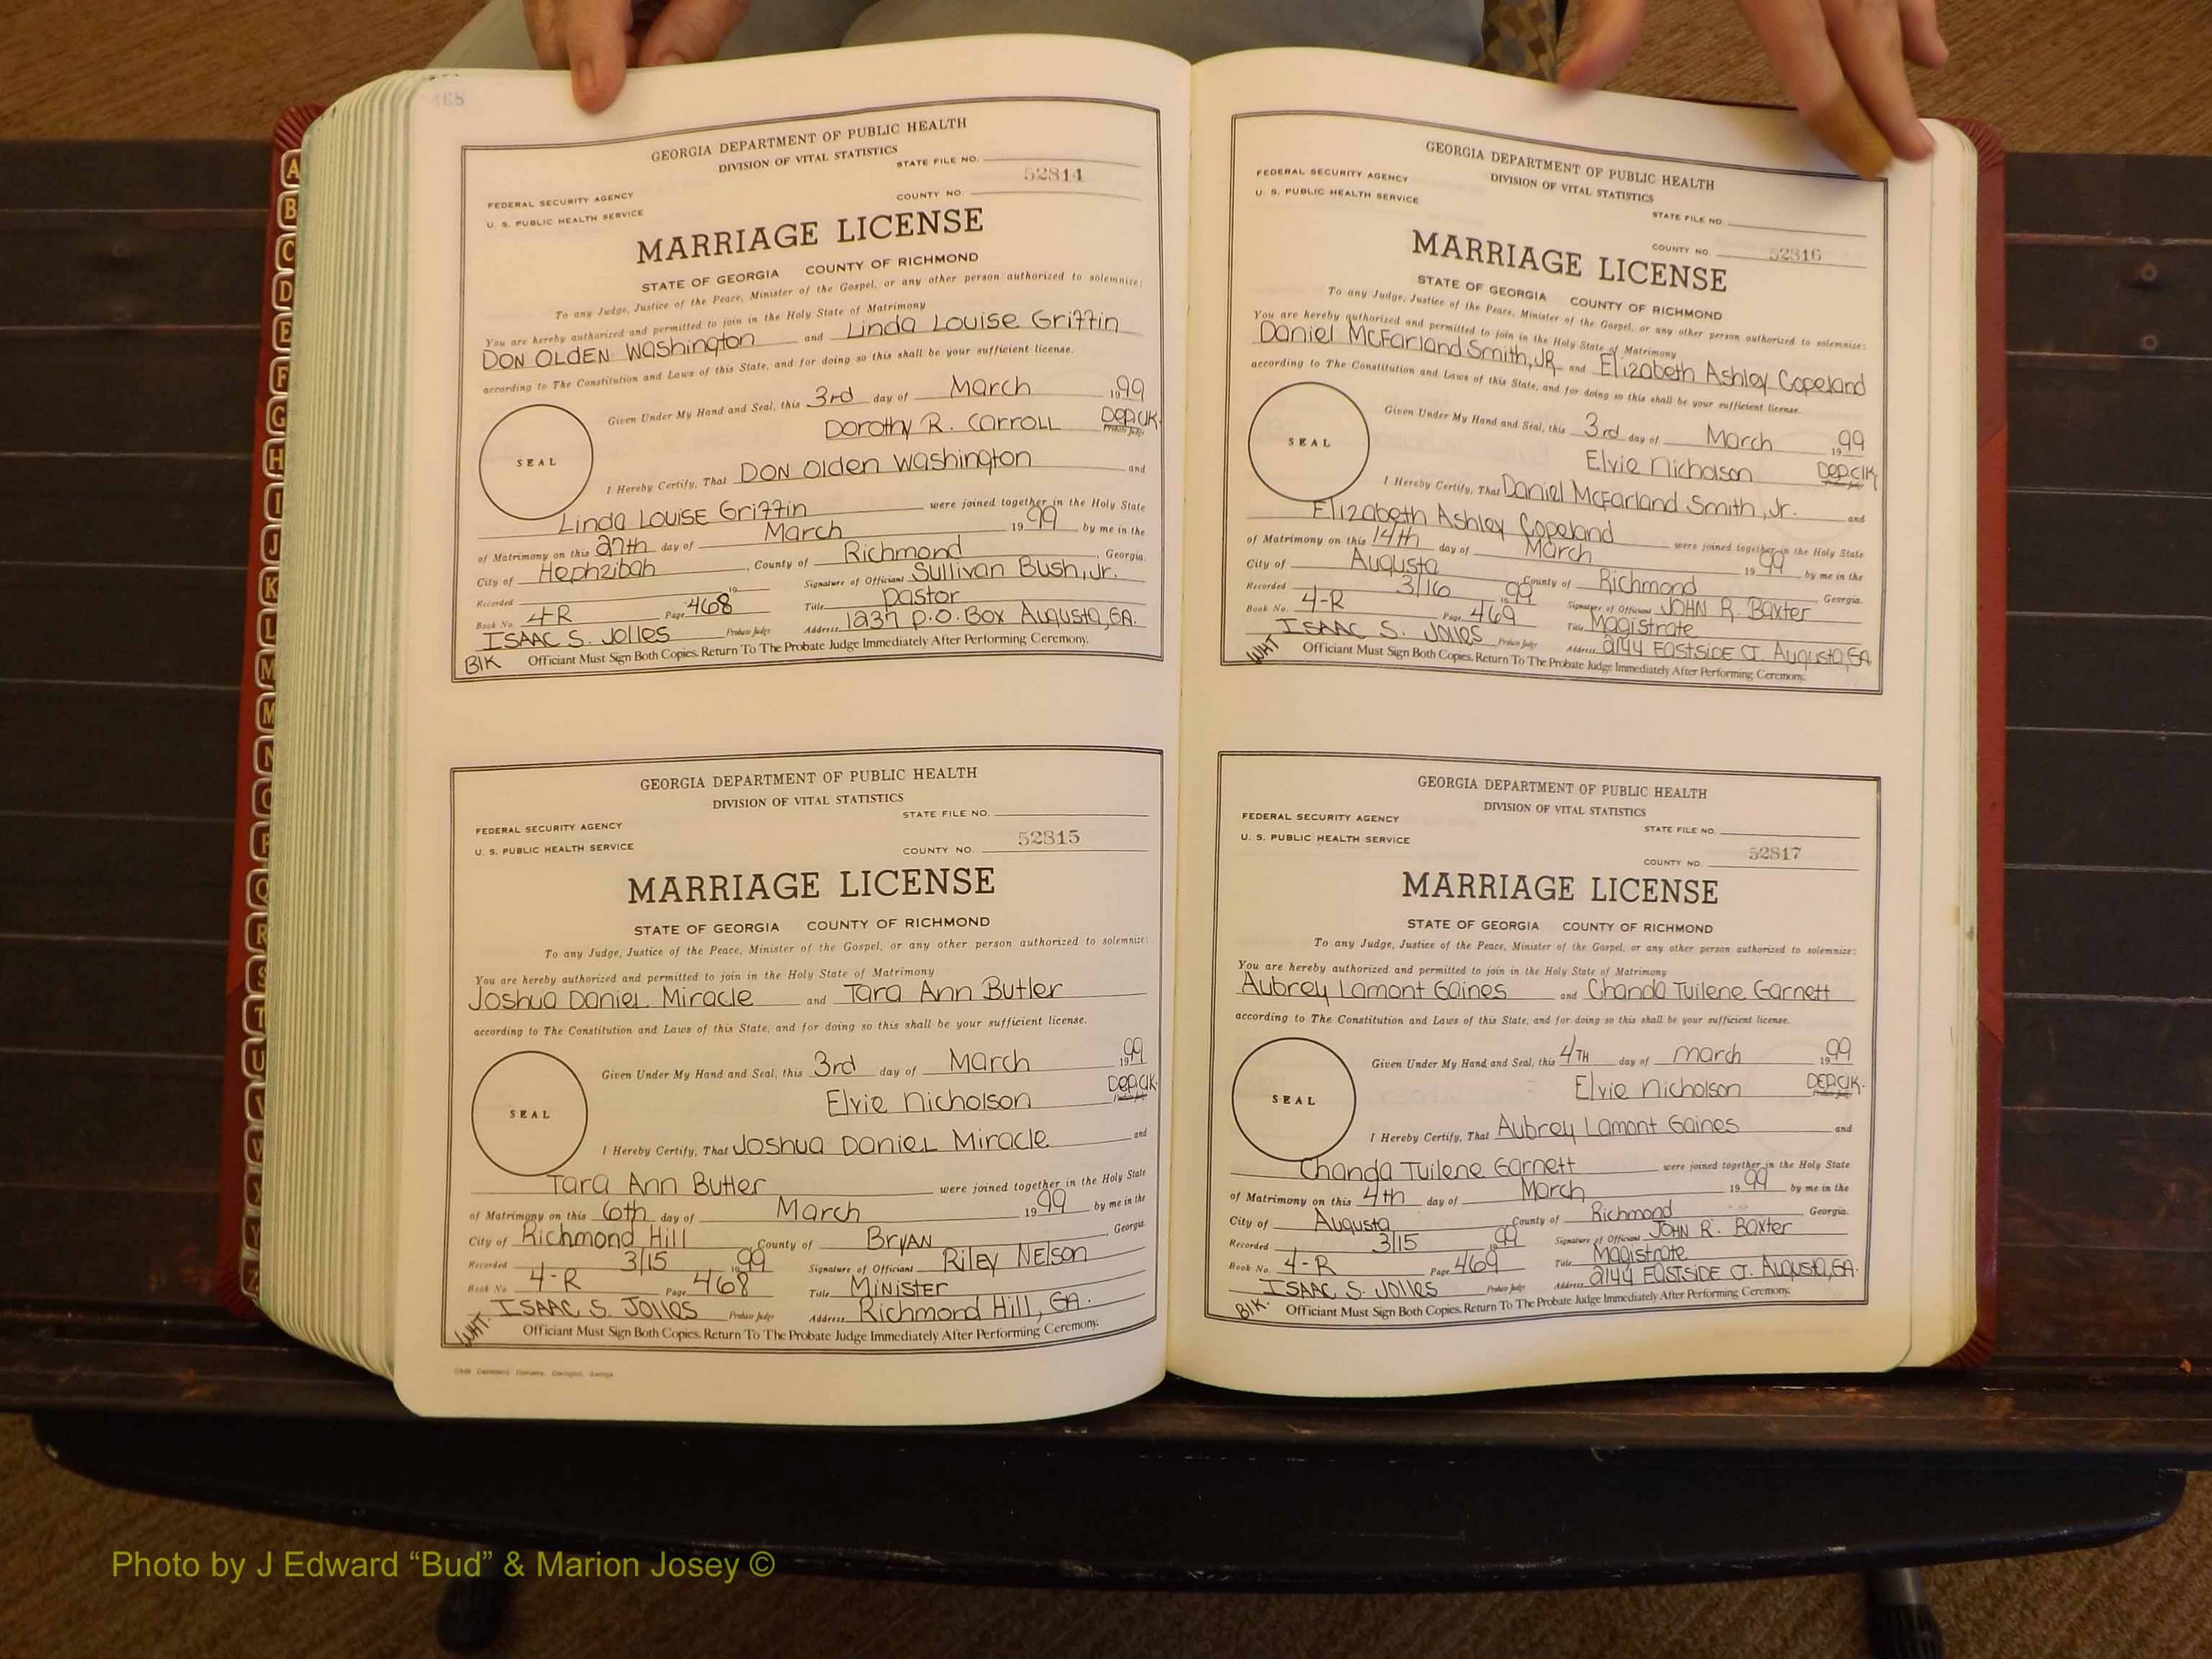 168
GEORGIA DEPARTMENT OF PUBLIC HEALTH
DIVISION OF VITAL STATISTICS
STATE FILE NO.
52814
FEDERAL SECURITY AGENCY
COUNTY NO.
U. S. PUBLIC HEALTH SERVICE
MARRIAGE LICENSE
STATE OF GEORGIA COUNTY OF RICHMOND
To any Judge, Justice of the Peace, Minister of the Gospel, or any other person authorized to solemnize:
You are hereby authorized and permitted to join in the Holy State of Matrimony
DON OLDEN Washington and Linda Louise Griffin
according to The Constitution and Laws of this State, and for doing so this shall be your sufficient license.
Given Under My Hand and Seal, this 3rd day of March 1999
Dorothy R. Carroll DEP.CIK. Probate Judge
SEAL
I Hereby Certify, That DON Olden Washington and
Linda LOUISE Griffin were joined together in the Holy State
of Matrimony on this 27th day of March 1999 by me in the
City of Hephzibah, County of Richmond, Georgia.
Recorded 19 Signature of Official Sullivan Bush, Jr.
Book No. 4-R Page 468 Title pastor
ISAAC S. Jolles Probate Judge Address 1237 P.O. Box Augusta, GA.
BIK Officiant Must Sign Both Copies. Return To The Probate Judge Immediately After Performing Ceremony.
GEORGIA DEPARTMENT OF PUBLIC HEALTH
DIVISION OF VITAL STATISTICS
STATE FILE NO.
FEDERAL SECURITY AGENCY
52815
U. S. PUBLIC HEALTH SERVICE COUNTY NO.
MARRIAGE LICENSE
STATE OF GEORGIA COUNTY OF RICHMOND
To any Judge, Justice of the Peace, Minister of the Gospel, or any other person authorized to solemnize:
You are hereby authorized and permitted to join in the Holy State of Matrimony
Joshua Daniel Miracle and Tara Ann Butler
according to The Constitution and Laws of this State, and for doing so this shall be your sufficient license.
Given Under My Hand and Seal, this 3rd day of March 1999
Elvie Nicholson DEP.CIK. Probate Judge
SEAL
I Hereby Certify, That Joshua Daniel Miracle and
Tara Ann Butler were joined together in the Holy State
of Matrimony on this 6th day of March 1999 by me in the
City of Richmond Hill, County of BRYAN, Georgia.
Recorded 3/15 1999 Signature of Official Riley Nelson
Book No. 4-R Page 468 Title Minister
ISAAC S. Jolles Probate Judge Address Richmond Hill, GA.
WHT. Officiant Must Sign Both Copies. Return To The Probate Judge Immediately After Performing Ceremony.
GEORGIA DEPARTMENT OF PUBLIC HEALTH
DIVISION OF VITAL STATISTICS
FEDERAL SECURITY AGENCY
U. S. PUBLIC HEALTH SERVICE
STATE FILE NO.
COUNTY NO. 52816
MARRIAGE LICENSE
STATE OF GEORGIA COUNTY OF RICHMOND
To any Judge, Justice of the Peace, Minister of the Gospel, or any other person authorized to solemnize:
You are hereby authorized and permitted to join in the Holy State of Matrimony
Daniel McFarland Smith, JR and Elizabeth Ashley Copeland
according to The Constitution and Laws of this State, and for doing so this shall be your sufficient license.
Given Under My Hand and Seal, this 3rd day of March 1999
Elvie Nicholson DEP.CIK
SEAL
I Hereby Certify, That Daniel McFarland Smith, Jr. and
Elizabeth Ashley Copeland were joined together in the Holy State
of Matrimony on this 14th day of March 1999 by me in the
City of Augusta County of Richmond Georgia.
Recorded 3/16 1999 Signature of Official JOHN R. Baxter
Book No. 4-R Page 469 Title Magistrate
ISAAC S. Jolles Probate Judge Address 2144 EASTSIDE CT. Augusta, GA.
WHT Officiant Must Sign Both Copies. Return To The Probate Judge Immediately After Performing Ceremony.
GEORGIA DEPARTMENT OF PUBLIC HEALTH
DIVISION OF VITAL STATISTICS
FEDERAL SECURITY AGENCY
STATE FILE NO.
U. S. PUBLIC HEALTH SERVICE
COUNTY NO. 52817
MARRIAGE LICENSE
STATE OF GEORGIA COUNTY OF RICHMOND
To any Judge, Justice of the Peace, Minister of the Gospel, or any other person authorized to solemnize:
You are hereby authorized and permitted to join in the Holy State of Matrimony
Aubrey Lamont Gaines and Chanda Tuilene Garnett
according to The Constitution and Laws of this State, and for doing so this shall be your sufficient license.
Given Under My Hand and Seal, this 4TH day of march 1999
Elvie Nicholson DEP.CIK.
SEAL
I Hereby Certify, That Aubrey Lamont Gaines and
Chanda Tuilene Garnett were joined together in the Holy State
of Matrimony on this 4th day of March 1999 by me in the
City of Augusta County of Richmond Georgia.
Recorded 3/15 1999 Signature of Official JOHN R. Baxter
Book No. 4-R Page 469 Title Magistrate
ISAAC S. Jolles Probate Judge Address 2144 EASTSIDE CT. Augusta, GA.
BIK. Officiant Must Sign Both Copies. Return To The Probate Judge Immediately After Performing Ceremony.
A
B
C
D
E
F
G
H
I
J
K
L
M
M
N
O
P
Q
R
S
T
U
V
W
X
Y
Z
Photo by J Edward “Bud” & Marion Josey ©